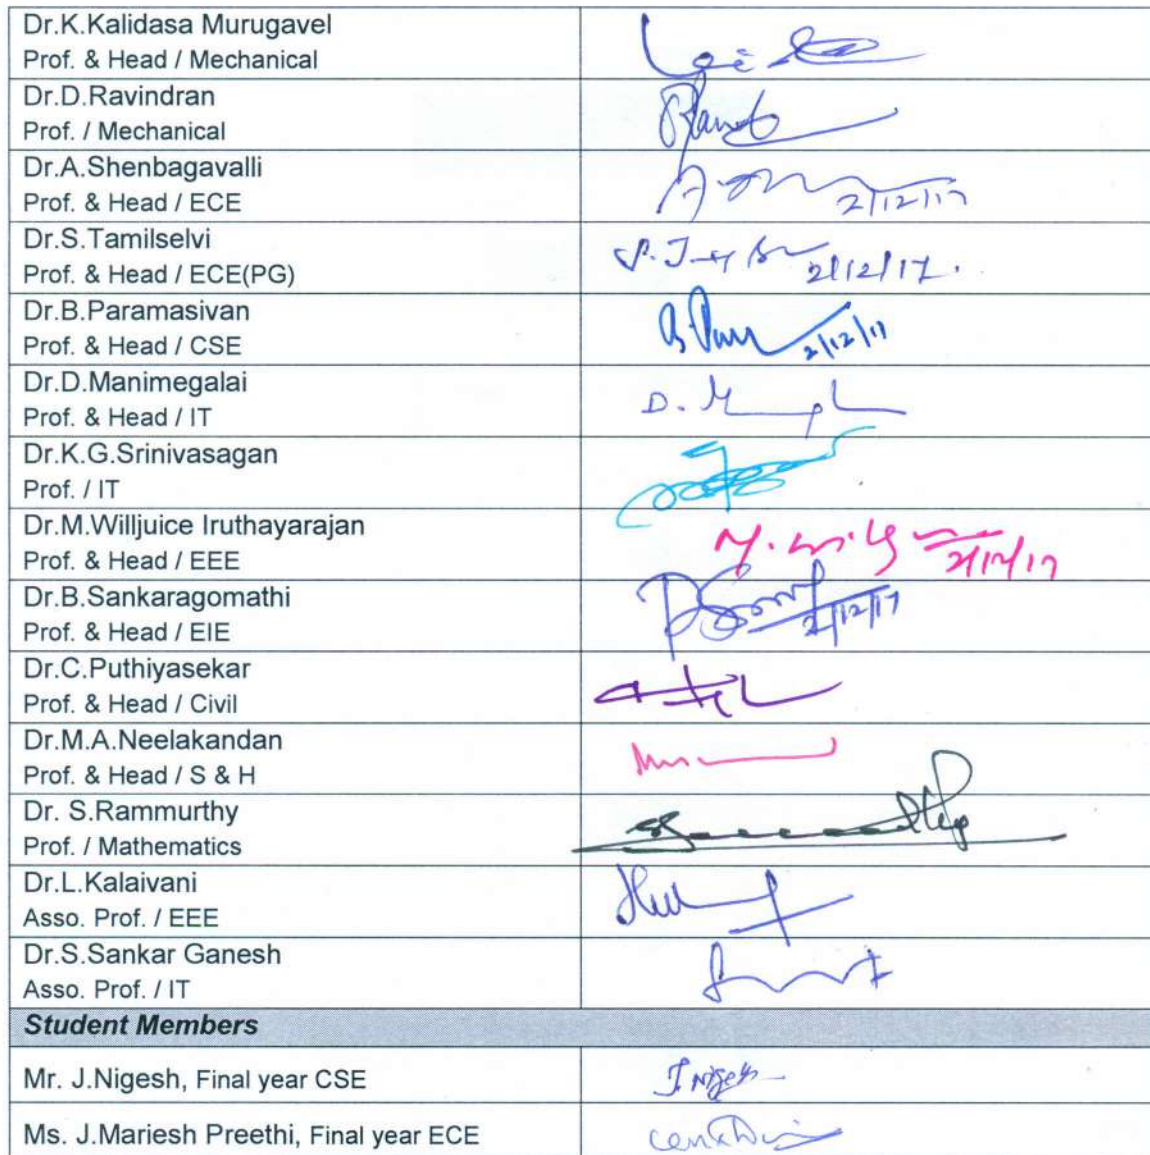 Dr.K.Kalidasa Murugavel
Prof. & Head / Mechanical
Dr.D.Ravindran
Prof. / Mechanical
Dr.A.Shenbagavalli
Prof. & Head / ECE
2/12/17
Dr.S.Tamilselvi
Prof. & Head / ECE(PG)
2/12/17.
Dr.B.Paramasivan
Prof. & Head / CSE
2/12/17
Dr.D.Manimegalai
Prof. & Head / IT
D.
Dr.K.G.Srinivasagan
Prof. / IT
Dr.M.Willjuice Iruthayarajan
Prof. & Head / EEE
2/12/17
Dr.B.Sankaragomathi
Prof. & Head / EIE
2/12/17
Dr.C.Puthiyasekar
Prof. & Head / Civil
Dr.M.A.Neelakandan
Prof. & Head / S & H
Dr. S.Rammurthy
Prof. / Mathematics
Dr.L.Kalaivani
Asso. Prof. / EEE
Dr.S.Sankar Ganesh
Asso. Prof. / IT
Student Members
Mr. J.Nigesh, Final year CSE
J. Nigesh
Ms. J.Mariesh Preethi, Final year ECE